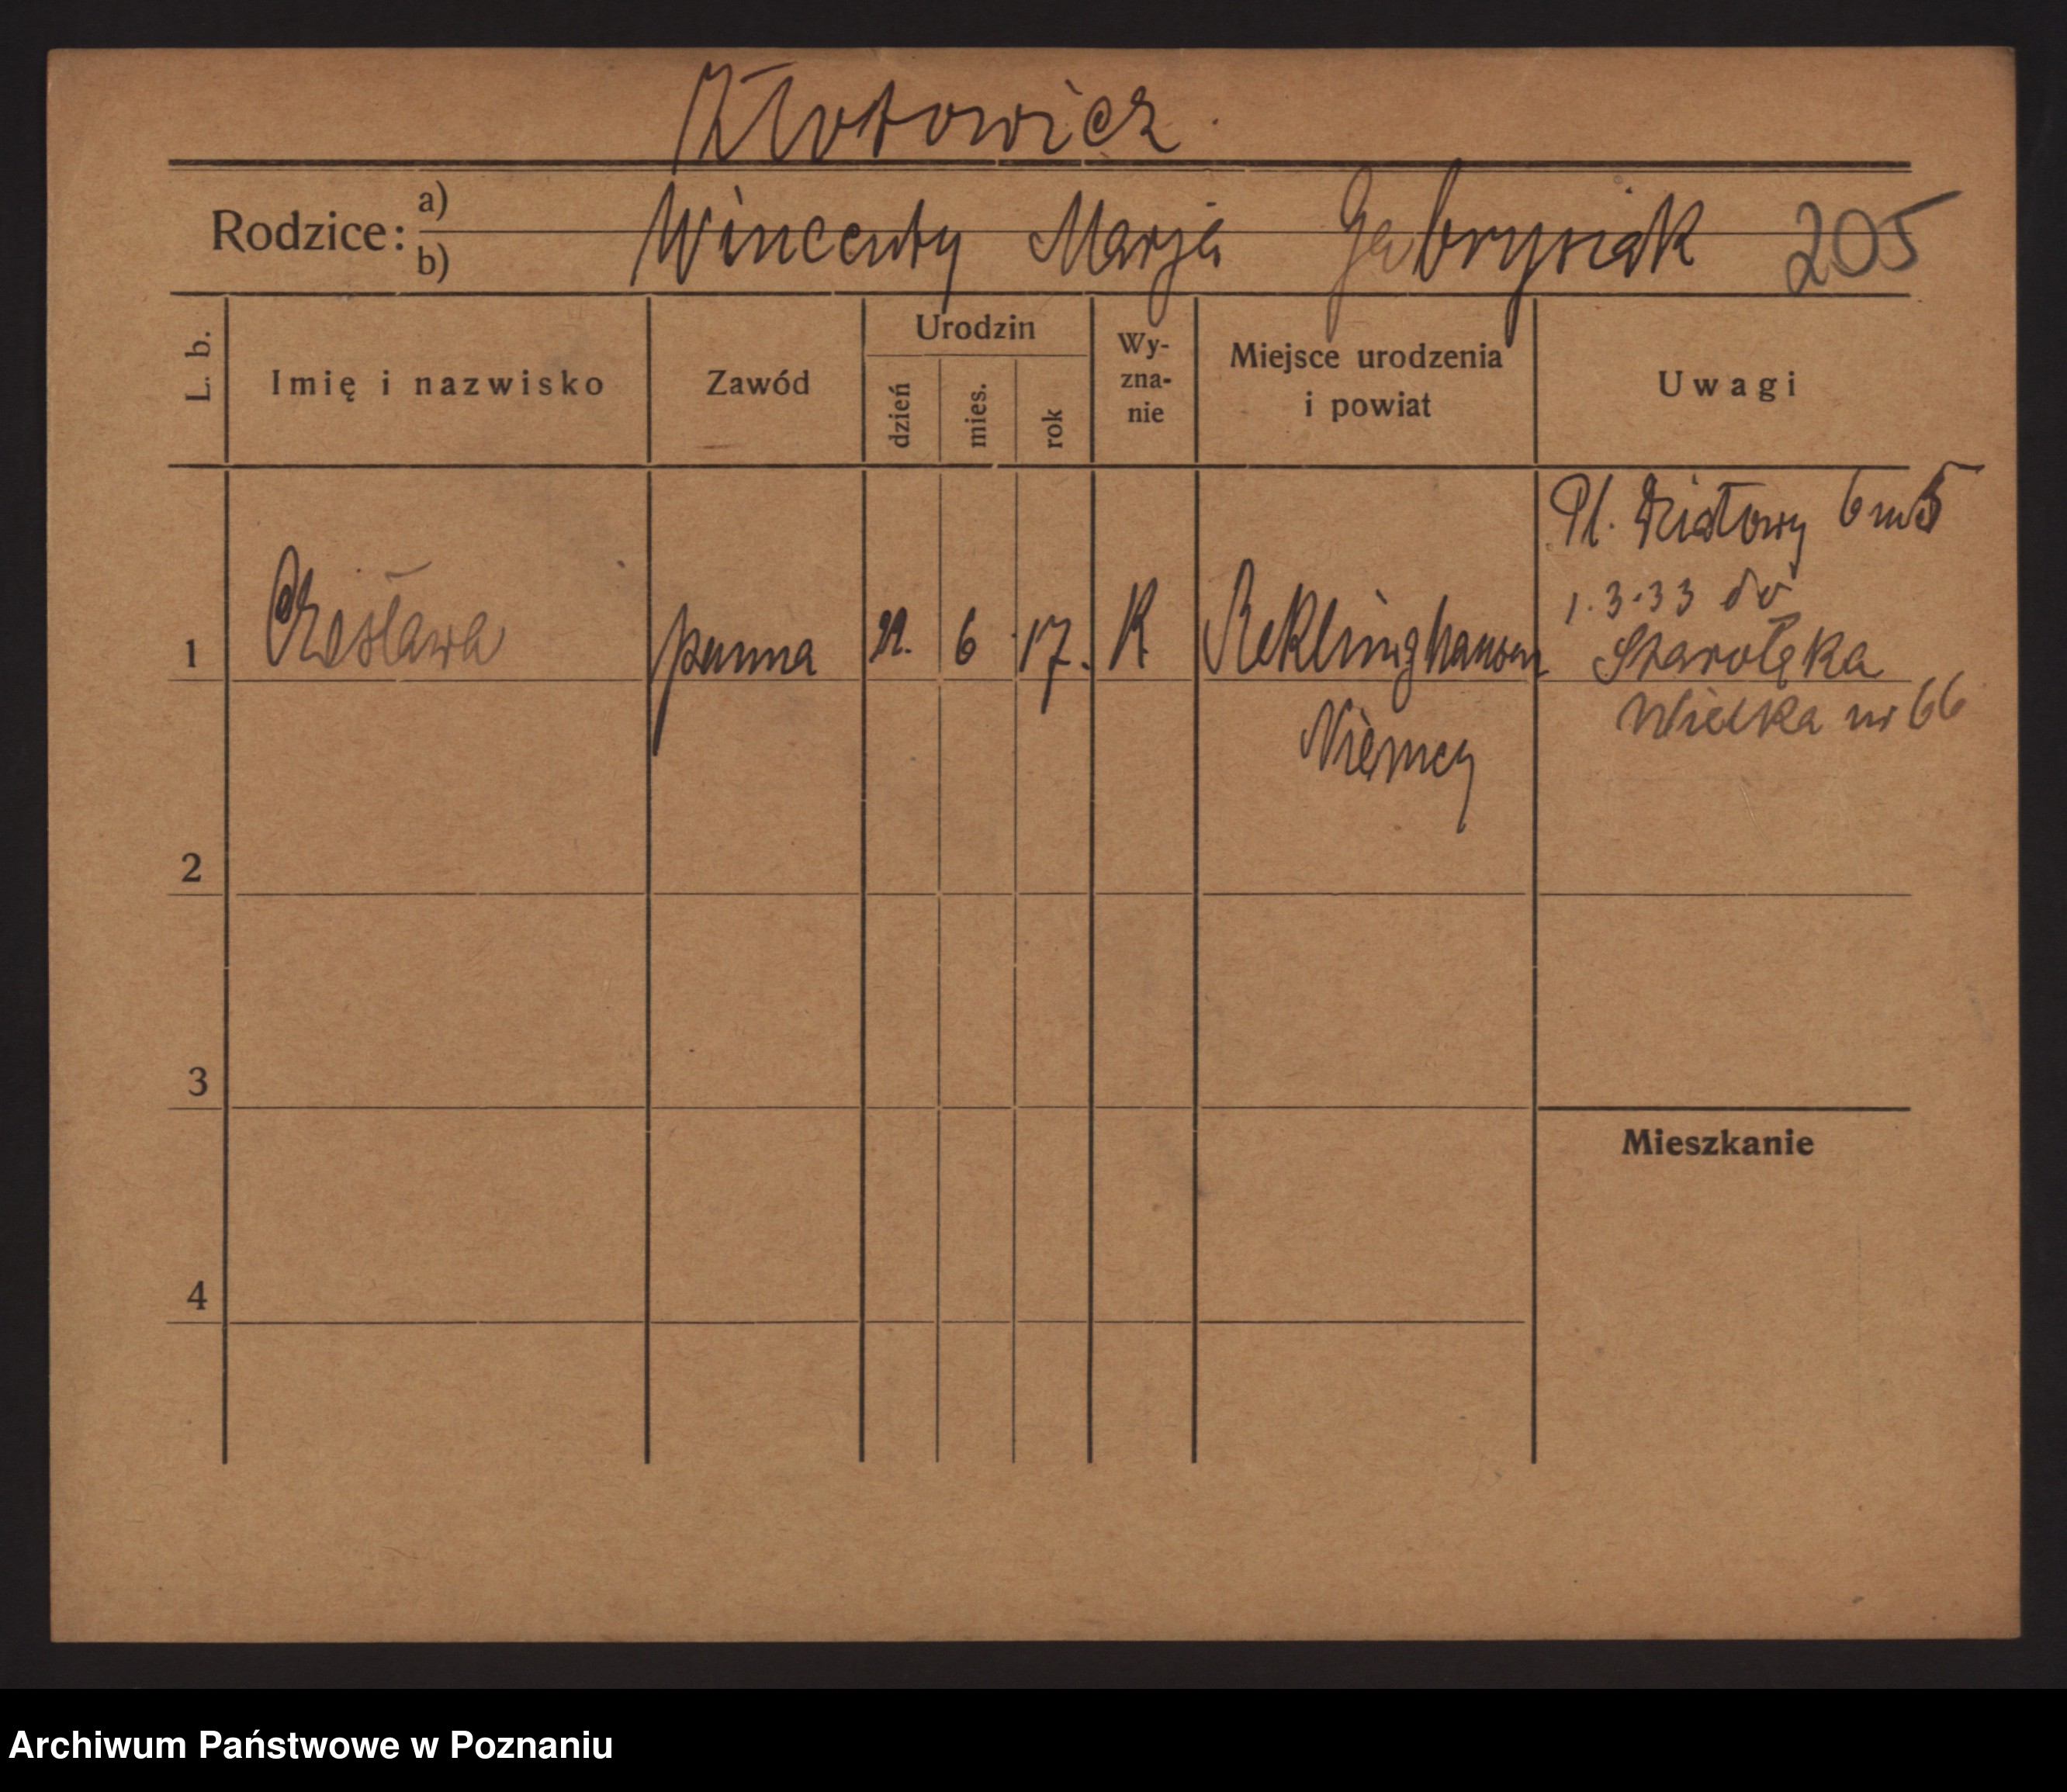 Złotowicz.
Rodzice: a)
b) Wincenty Marja Gabrysiak 205
L. b.
Imię i nazwisko
Zawód
Urodzin
dzień
mies.
rok
Wy-
zna-
nie
Miejsce urodzenia
i powiat
Uwagi
Pl. Działowy 6 m 5
1.3.33 do
1 Czesława panna 22. 6 17. K Reklinghausen Starołęka
Niemcy
Wielka nr 66
2
3
Mieszkanie
4
Archiwum Państwowe w Poznaniu